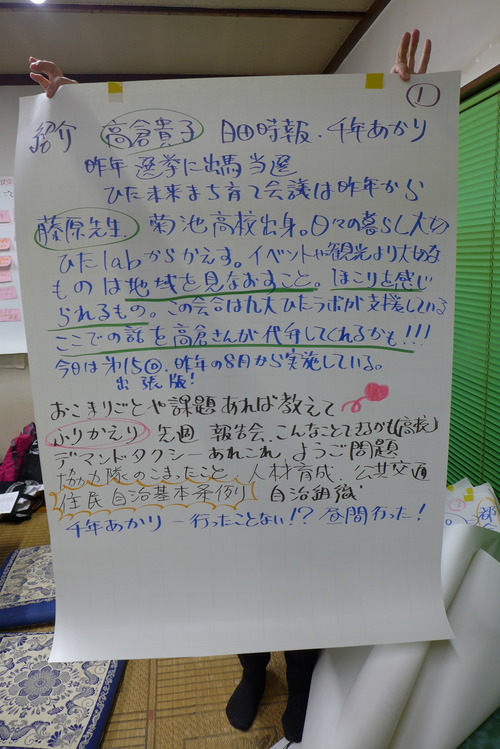 ①
紹介 高倉貴子 日田時報、千年あかり
昨年 選挙に出馬当選
ひた未来まち育て会議は昨年から
藤原先生 菊池高校出身。日々の暮らし大切
ひたlabからかえす。イベントや観光より大切な
ものは地域を見なおすこと。ほこりを感じ
られるもの。この会合は九大ひたラボが支援している
ここでの話を高倉さんが代弁してくれるかも!!!
今日は第15回、昨年の8月から実施している。
出張版!
おこまりごとや課題あれば教えて
ふりかえり 先週 報告会、こんなことしてるのも
デマンドタクシーあれこれ、ようご問題
協力隊のこまったこと、人材育成、公共交通
住民自治基本条例り 自治組織
千年あかり 一行ったことない!? 昼間行った!